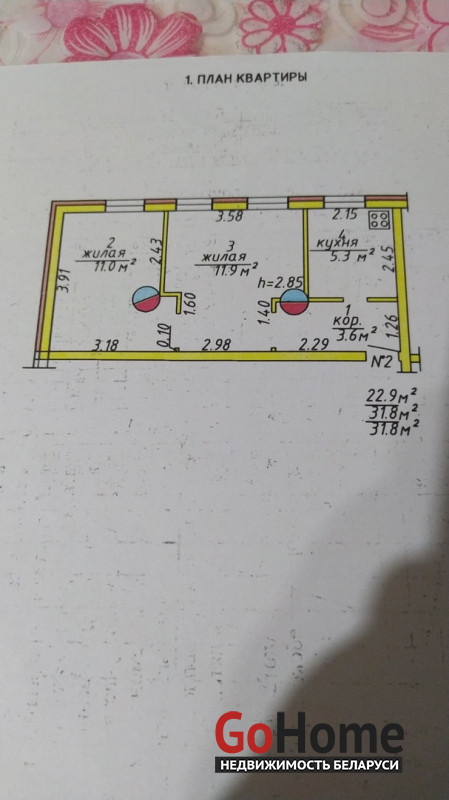 1. ПЛАН КВАРТИРЫ
3.58
2.15
2
жилая
11.0 м²
2.43
3
жилая
11.9 м²
4
кухня
5.3 м²
2.45
3.91
h=2.85
1.60
1.40
1
кор.
3.6 м²
1.26
0.10
3.18
2.98
2.29
№2
22.9 м²
31.8 м²
31.8 м²
GoHome
НЕДВИЖИМОСТЬ БЕЛАРУСИ